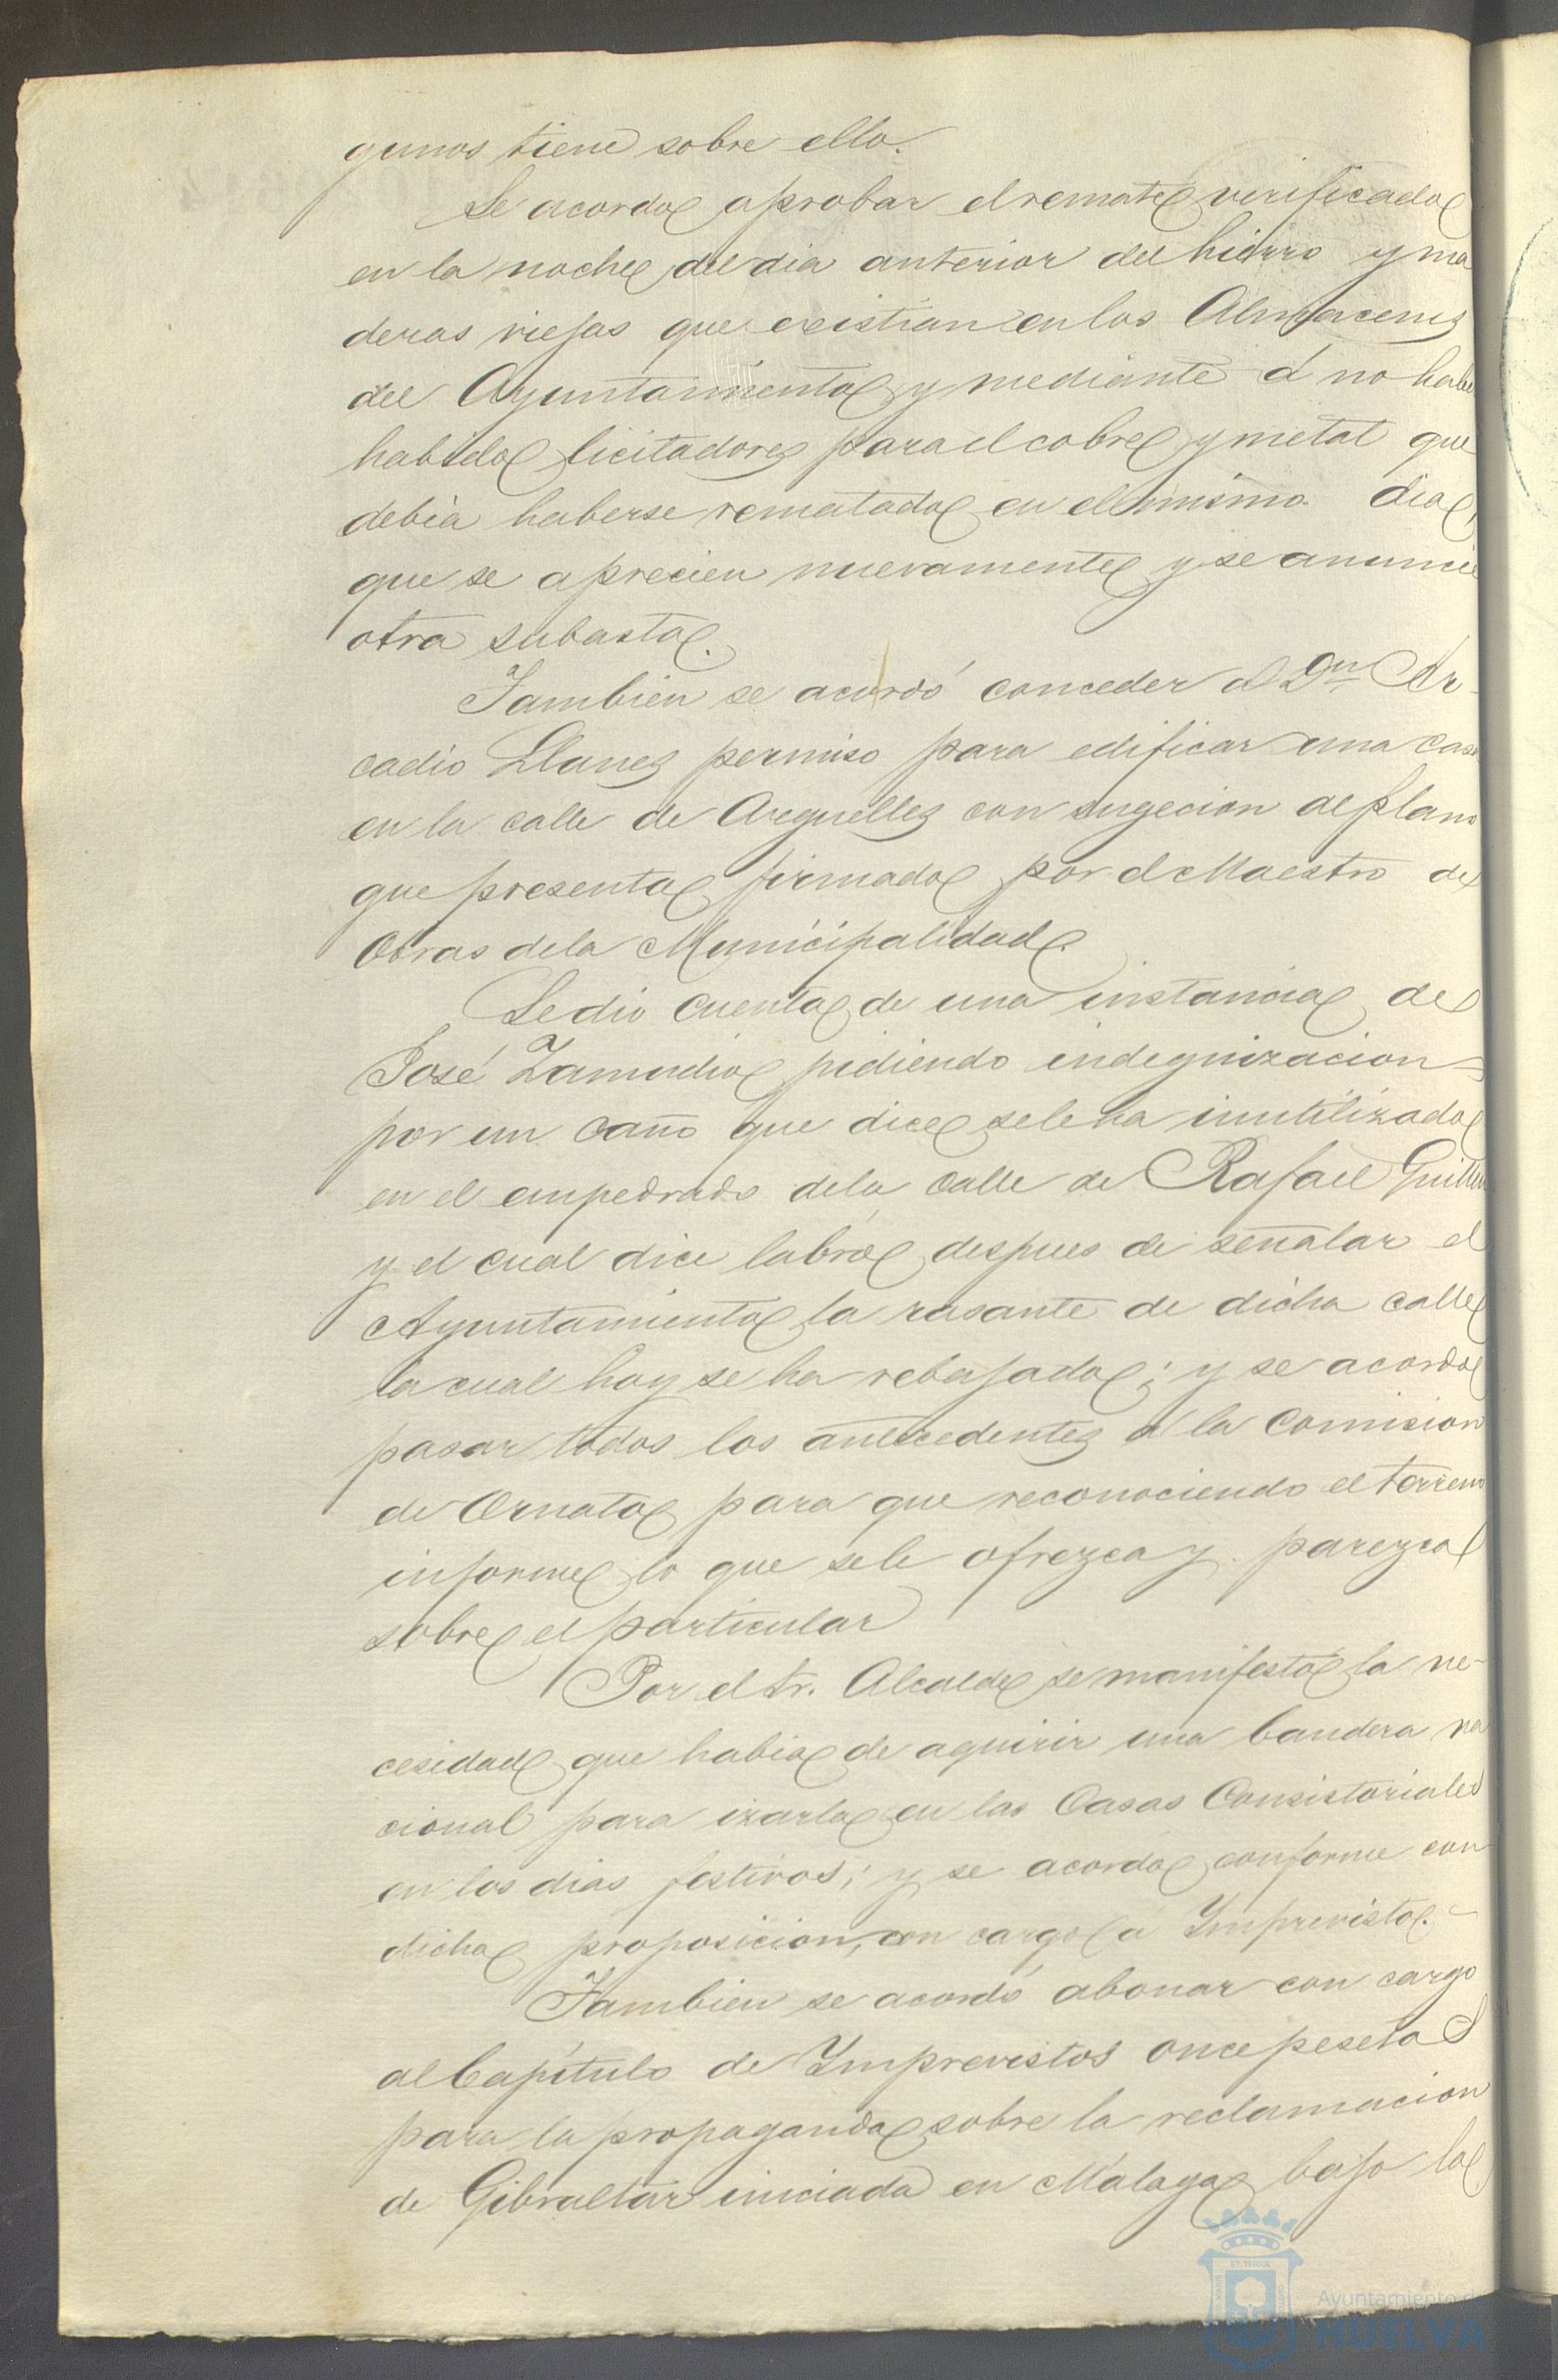 gunos tiene sobre ello.
Se acordó aprobar el remate verificado
en la noche del dia anterior del hierro y ma
deras viejas que existian en los Almacenes
del Ayuntamiento y mediante á no haber
habido licitadores para el cobre y metal que
debia haberse rematado en el mismo dia,
que se aprecien nuevamente y se anuncie
otra subasta.
Tambien se acordó conceder a Dn Ar-
cadio Llanes permiso para edificar una casa
en la calle de Arguelles con sugecion al plano
que presenta firmado por el Maestro de
Obras de la Municipalidad.
Se dió cuenta de una instancia de
José Zamudio pidiendo indegnizacion
por un caño que dice se le ha inutilizado
en el empedrado de la calle de Rafael Guillen
y el cual dice labró despues de señalar el
Ayuntamiento la rasante de dicha calle
la cual hoy se ha rebajado; y se acordó
pasar todos los antecedentes á la Comision
de Ornato para que reconociendo el terreno
informe lo que se le ofrezca y parezca
sobre el particular
Por el Sr. Alcalde se manifestó la ne-
cesidad que habia de aquirir una bandera na
cional para izarla en las Casas Consistoriales
en los dias festivos; y se acordó conforme con
dicha proposicion, con cargo a Imprevisto.
Tambien se acordó abonar con cargo
al Capítulo de Imprevistos once pesetas
para la propaganda sobre la reclamacion
de Gibraltar iniciada en Málaga bajo la
Ayuntamiento de
HUELVA